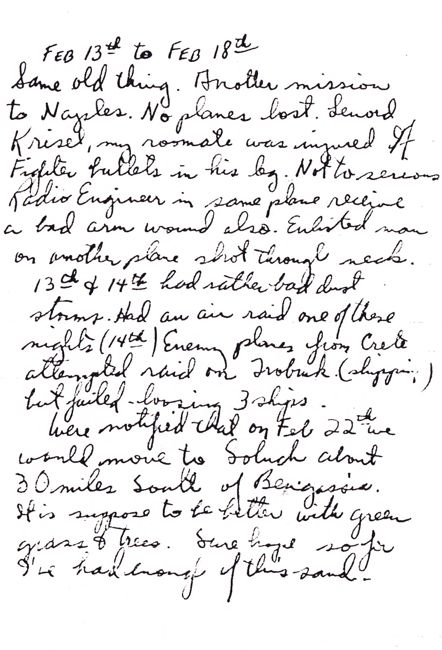 FEB 13th to FEB 18th
Same old thing. Another mission
to Naples. No planes lost. Lenord
Krisel, my roomate was injured
Fighter bullets in his leg. Not to serious
Radio Engineer in same plane receive
a bad arm wound also. Enlisted man
on another plane shot through neck.
13th & 14th had rather bad dust
storms. Had an air raid one of these
nights (14th) Enemy planes from Crete
attempted raid on Trobuk (shipping)
but failed - loosing 3 ships.
Were notified that on Feb 22th we
would move to Soluch about
30 miles South of
It is suppose to be better with green
grass & trees. Sure hope so for
I've had enough of this sand -